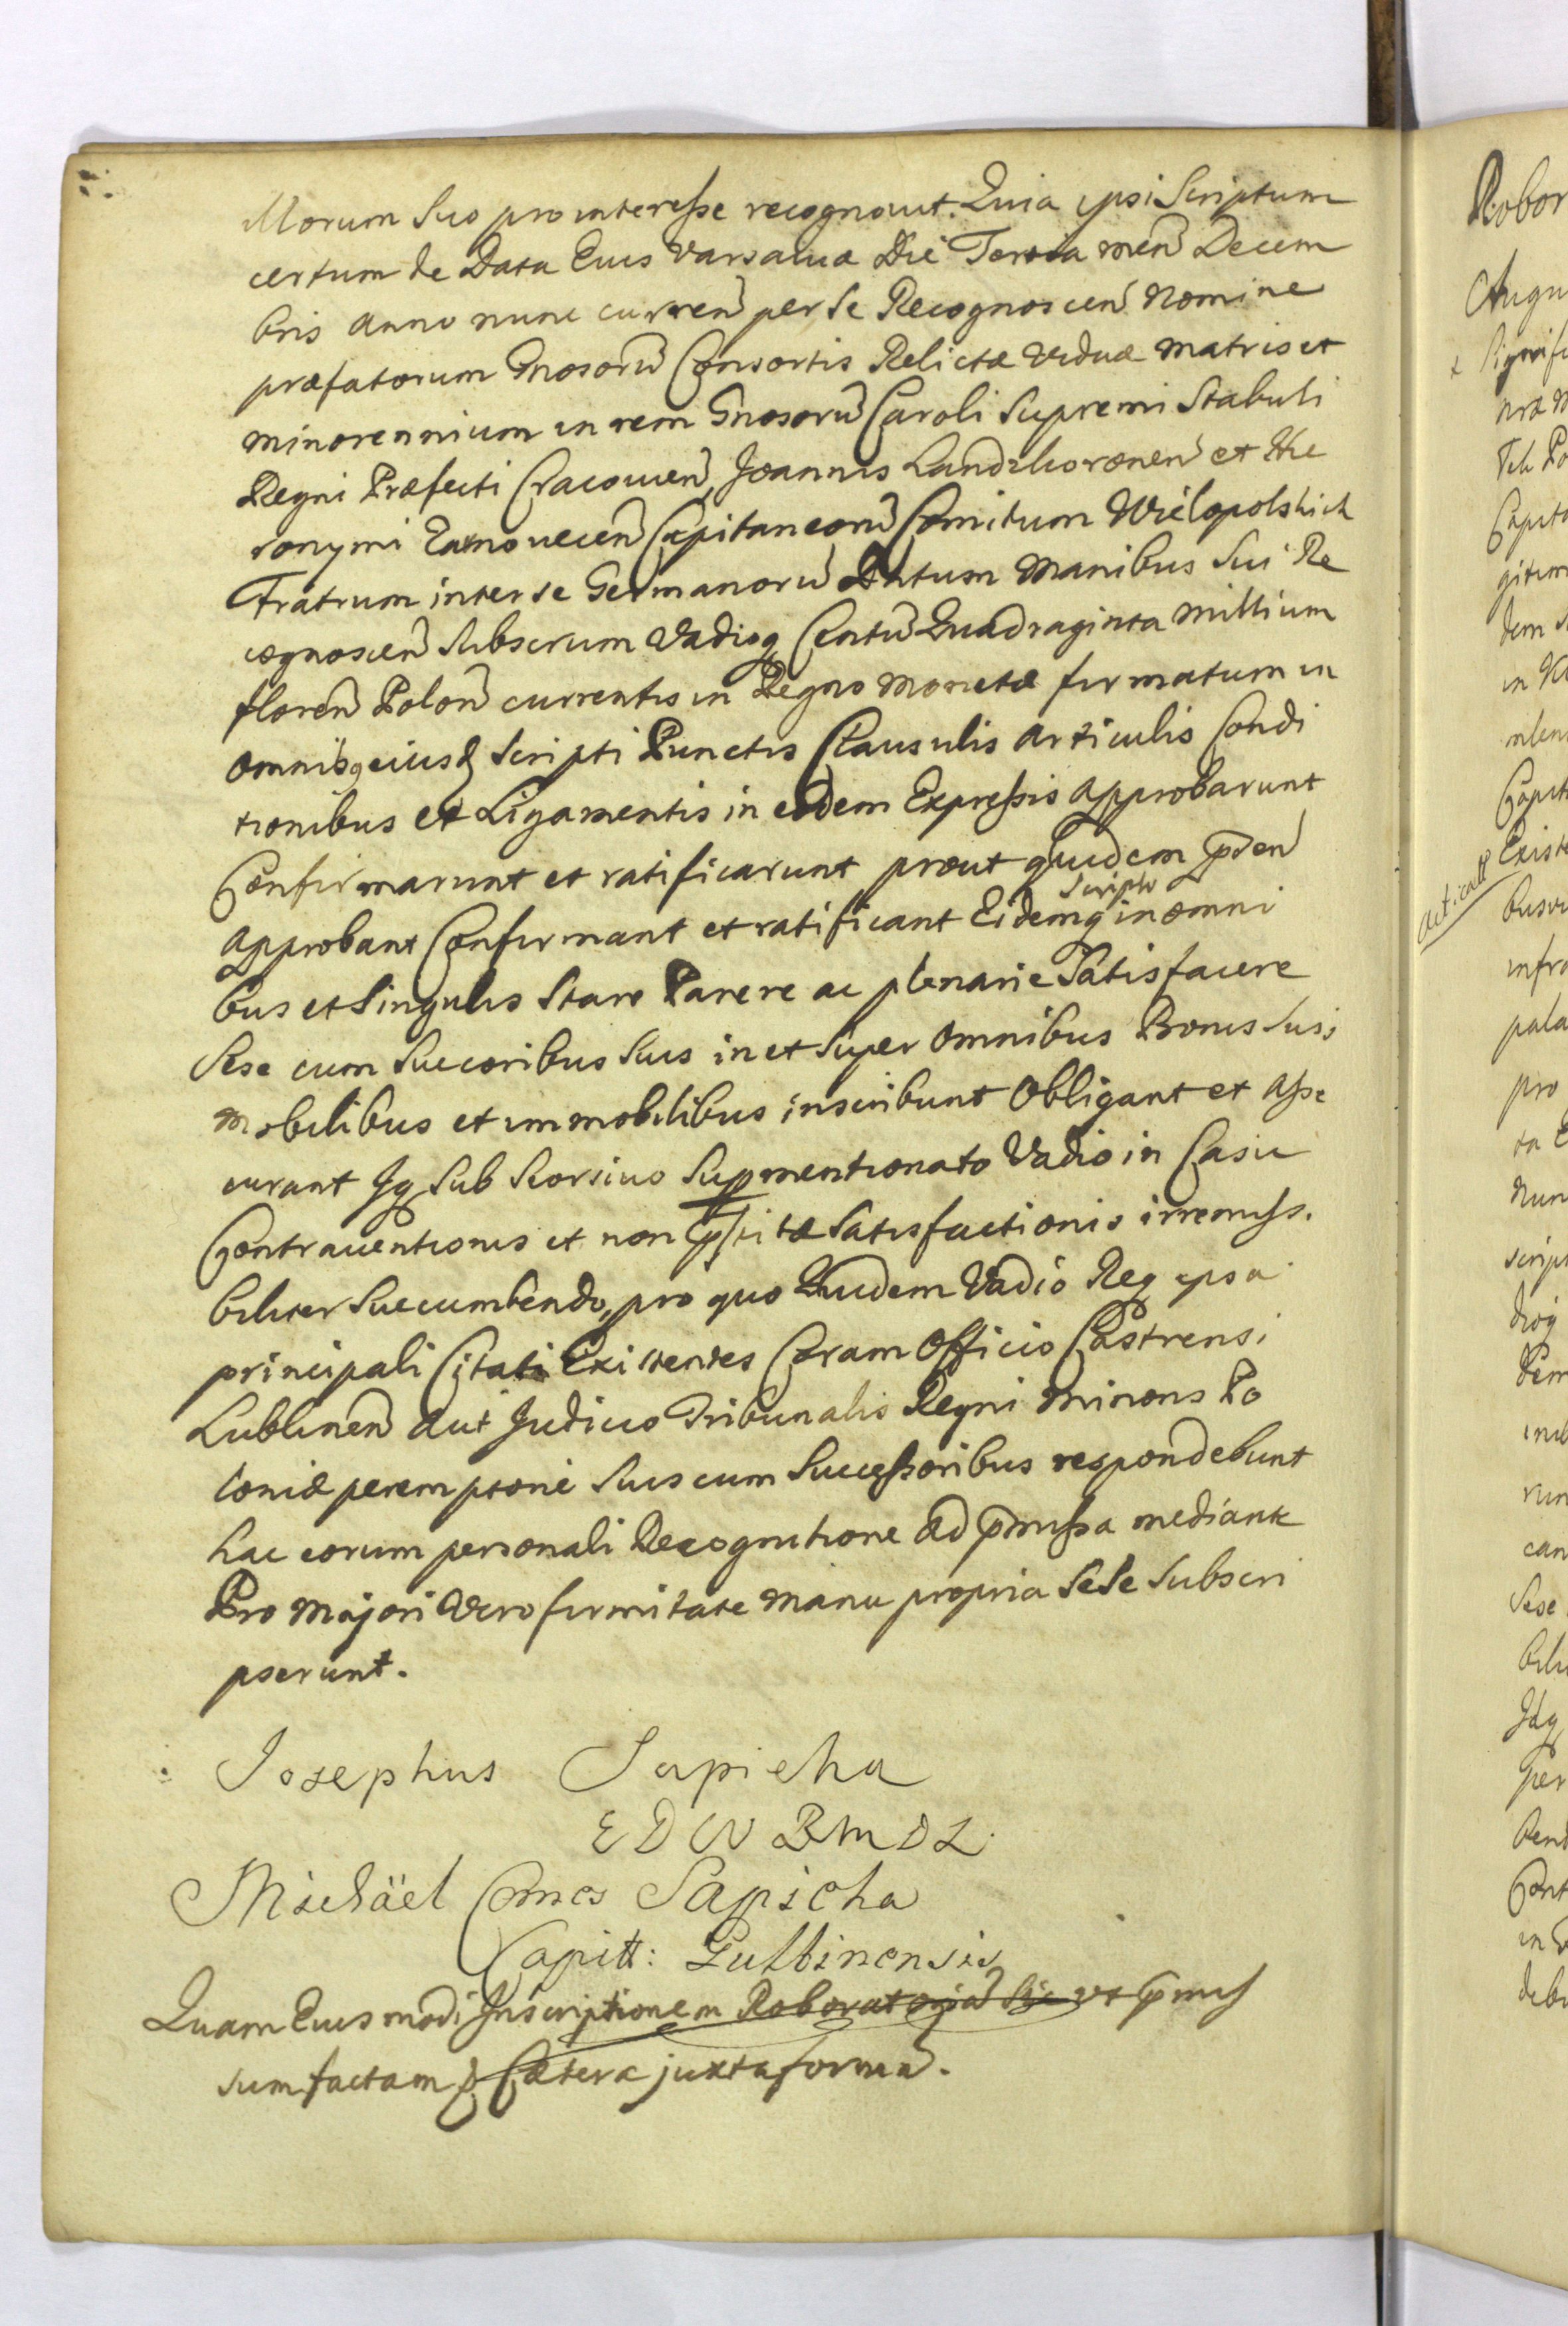 Morum Suo pro interesse recognovit. Quia ipsi Scriptum
certum de Data Eius Varsaviæ Die Tertia men Decem
bris anno nunc curren per Se Recognoscen Nomine
præfatorum Gnosorū Consortis Relictæ Viduæ Matris et
minorennium in rem Gnosorū Caroli Supremi Stabuli
Regni Præfecti Cracovien, Joannis Landzkoronen et Hie
ronymi Capitaneorū Comitum Wielopolskich
Fratrum inter se Germanorū Datum Manibus Sui Re
cognoscen Subscrum Vadioq Centū Quadraginta Millium
floren Polon currentis in Regno Monetæ firmatum in
omnibq eiusd Scripti Punctis Clausulis Articulis Condi
tionibus et Ligamentis in eodem Expressis approbarunt
Confirmarunt et ratificarunt prout quidem pnten
approbant Confirmant et ratificant Eidemq Scripto in omni
bus et Singulis Stare Parere ac plenarie Satisfacere
Sese cum Succoribus Suis in et Super Omnibus Bonis Suis
Mobilibus et immobilibus inscribunt Obligant et Asse
curant Idq Sub Seorsivo Suppmentionato Vadio in Casu
Contraventionis et non pstitæ Satisfactionis irremissi
biliter Succumbendo, pro quo Quidem Vadio Req ipsa
principali Citati Existentes Coram Officio Castrensi
Lublinen aut Judicio Tribunalis Regni Minoris Po
loniæ peremptorie Suis cum Successoribus respondebunt
hac eorum personali Recognitione ad pmissa mediante
Pro Majori Vero firmitate Manu propria Sese Subscri
pserunt.
Josephus Sapieha
E D W B M D L
Michäel Comes Sapieha
Capitt: Lublinensis
Quam Eiusmodi Inscriptionem Roboratoriā Sic ut pmis
sum factam & Cætera juxta formā.
Robor
Augu
Capit
actical
Existe
infra
pala
pro
Nun
script
can
Sese
Per
Cont